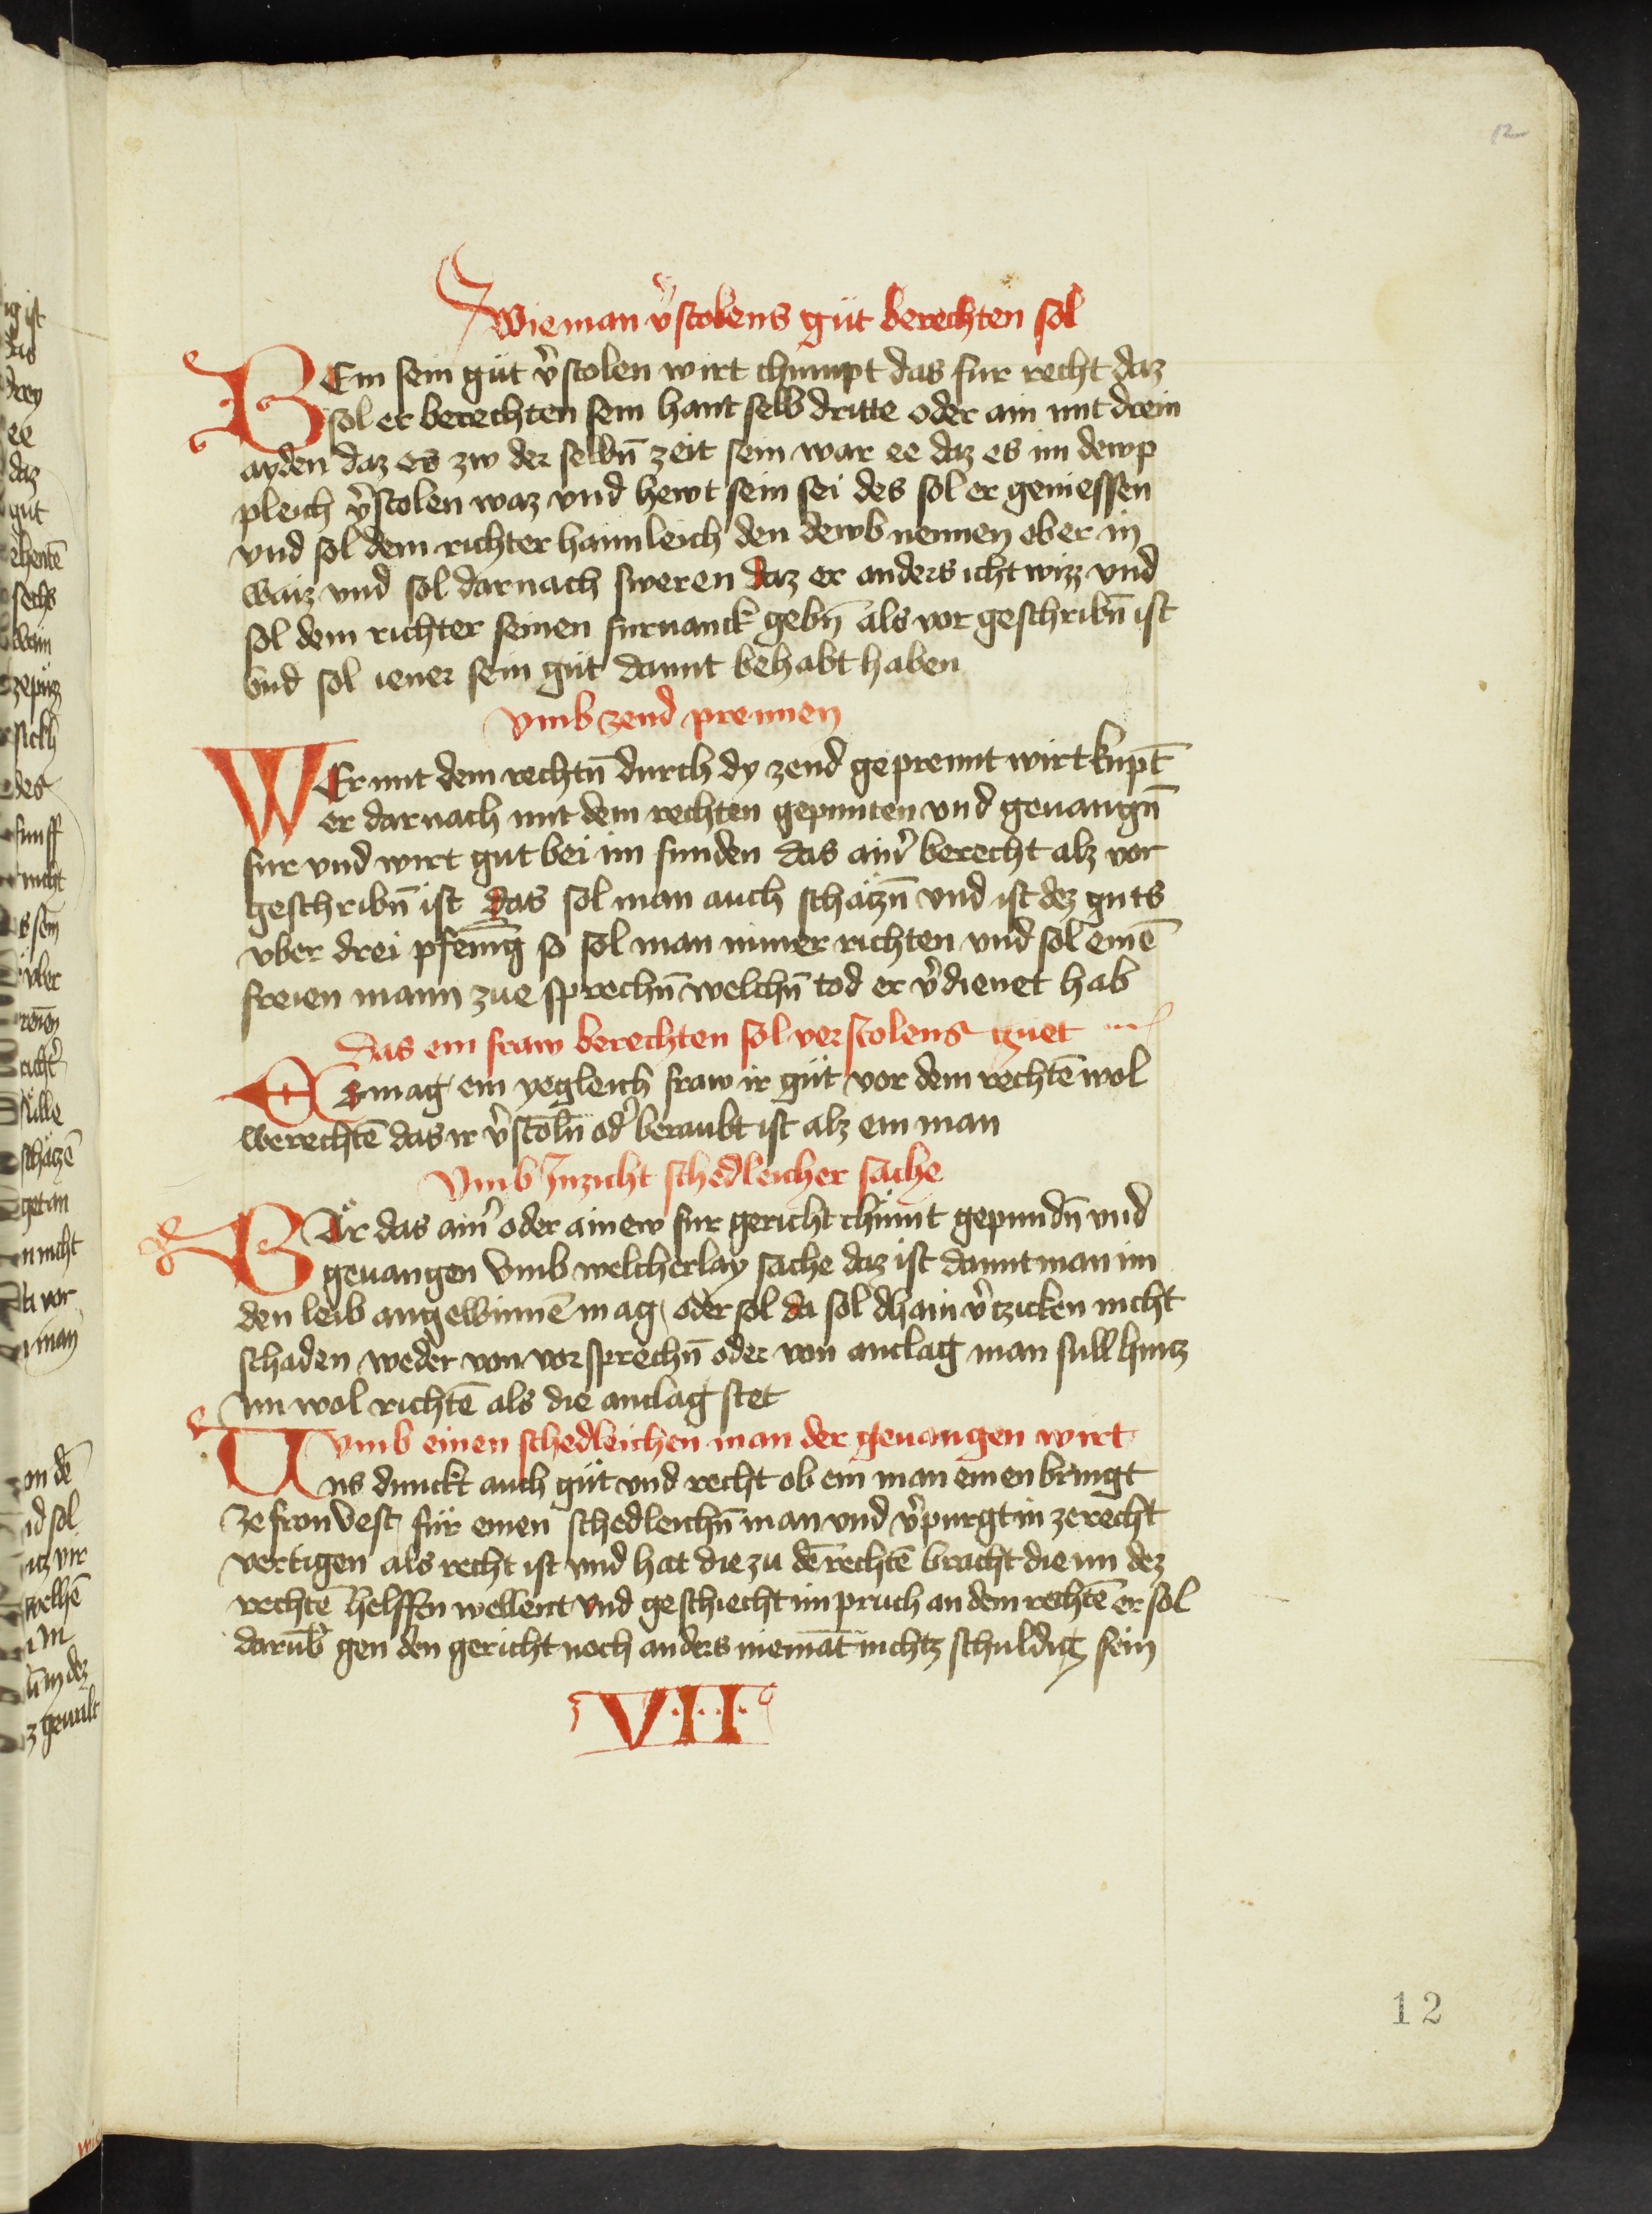 12
Wie man v̓stolens güt berechten sol
WEm sein güt v̓stolen wirt chumpt das fur recht daz
sol er berechten sein hant selb dritte oder ain mit drein
ayden daz es zw der selbn̄ zeit sein war ee daz es im dewp
pleich v̓stolen waz vnd hewt sein sei des sol er geniessen
vnd sol dem richter haimleich den dewb nennen ober in
waiz vnd sol dar nach sweren daz er anders icht wizz vnd
sol dem richter seinen furuanck gebn̄ als vor geschribn̄ ist
vnd sol iener sein güt damit behabt haben
vmb zend prennen
WEr mit dem rechtn̄ durch dy zend geprennt wirt kupt̄
er dar nach mit dem rechten gepunten vnd geuangn̄
fur vnd wirt gut bei im funden das ain̓ berecht alz vor
geschribn̄ ist das sol man auch schätzn̄ vnd ist dez guts
vber drei pfenn̄ig so sol man nimer richten vnd sol einē
freien mann zue sprechn̄ welchn̄ tod er v̓dienet hab
Das ein fraw berechten sol verstolens guet
Es mag ein yegleich fraw ir güt vor dem rechtē wol
berechtē das ir v̓stoln̄ od̓ beraubt ist alz ein man
Vmb Inzicht schedleicher sache
WÄr das ain̓ oder ainew fur gericht chümt gepundn̄ vnd
geuangen vmb welcherlay sache daz ist damit man im
den leib angewinnē mag oder sol da sol dhain v̓tzicken nicht
schaden weder von vorsprechn̄ oder von anclag man sull hintz
im wol richtē als die anclag stet
vmb einen schedleichen man der geuangen wirt
Uns dunckt auch güt vnd recht ob ein man einen bringt
ze fronvest für einen schedleichn̄ man vnd v̓purgt in ze recht
vertigen als recht ist vnd hat die zu dē rechtē bracht die im dez
rechtē helffen wellent vnd geschiecht im pruch an dem rechtē er sol
darūb̓ gen den gericht noch anders niemāt nichtz schuldig sein
V·I·I·
12